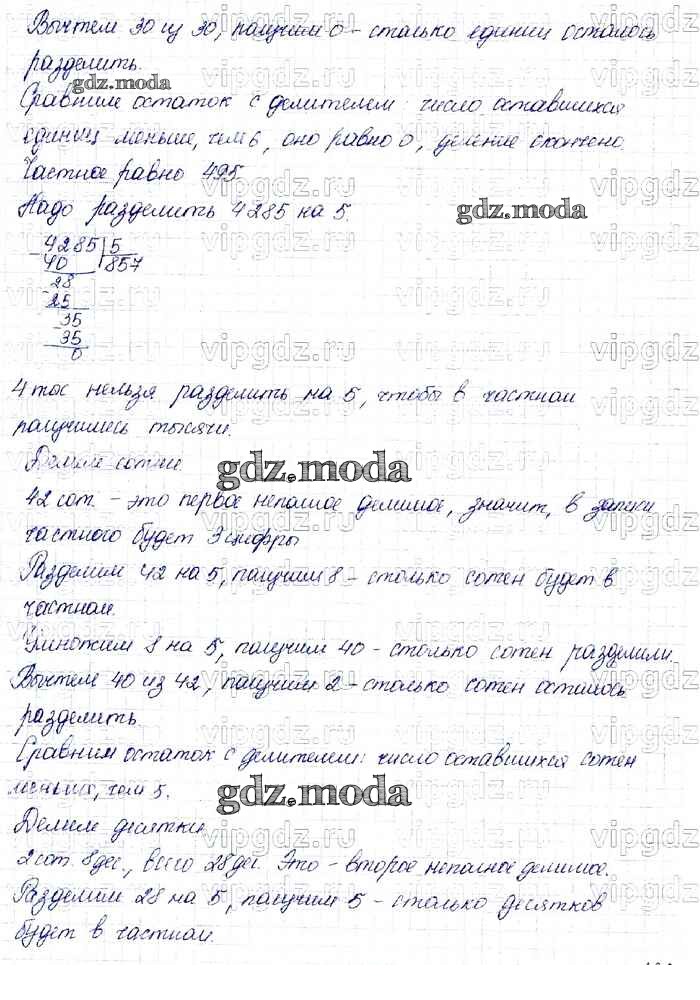 Вычтем 30 из 30, получим 0 – столько единиц осталось
разделить.
gdz.moda
Сравним остаток с делителем: число оставшихся
единиц меньше, чем 6, оно равно 0, деление окончено.
Частное равно 495.
Надо разделить 4285 на 5.
gdz.moda
4285 5
40 857
28
25
35
35
0
4 тыс нельзя разделить на 5, чтобы в частном
получились тысячи.
Делим сотни
gdz.moda
42 сот. – это первое неполное делимое, значит, в записи
частного будет 3 цифры
Разделим 42 на 5, получим 8 – столько сотен будет в
частном.
Умножим 8 на 5, получим 40 – столько сотен разделили.
Вычтем 40 из 42, получим 2 – столько сотен осталось
разделить.
Сравним остаток с делителем: число оставшихся сотен
меньше, чем 5.
gdz.moda
Делим десятки
2 сот. 8 дес., всего 28 дес. Это – второе неполное делимое.
Разделим 28 на 5, получим 5 – столько десятков
будет в частном.
vipgdz.ru